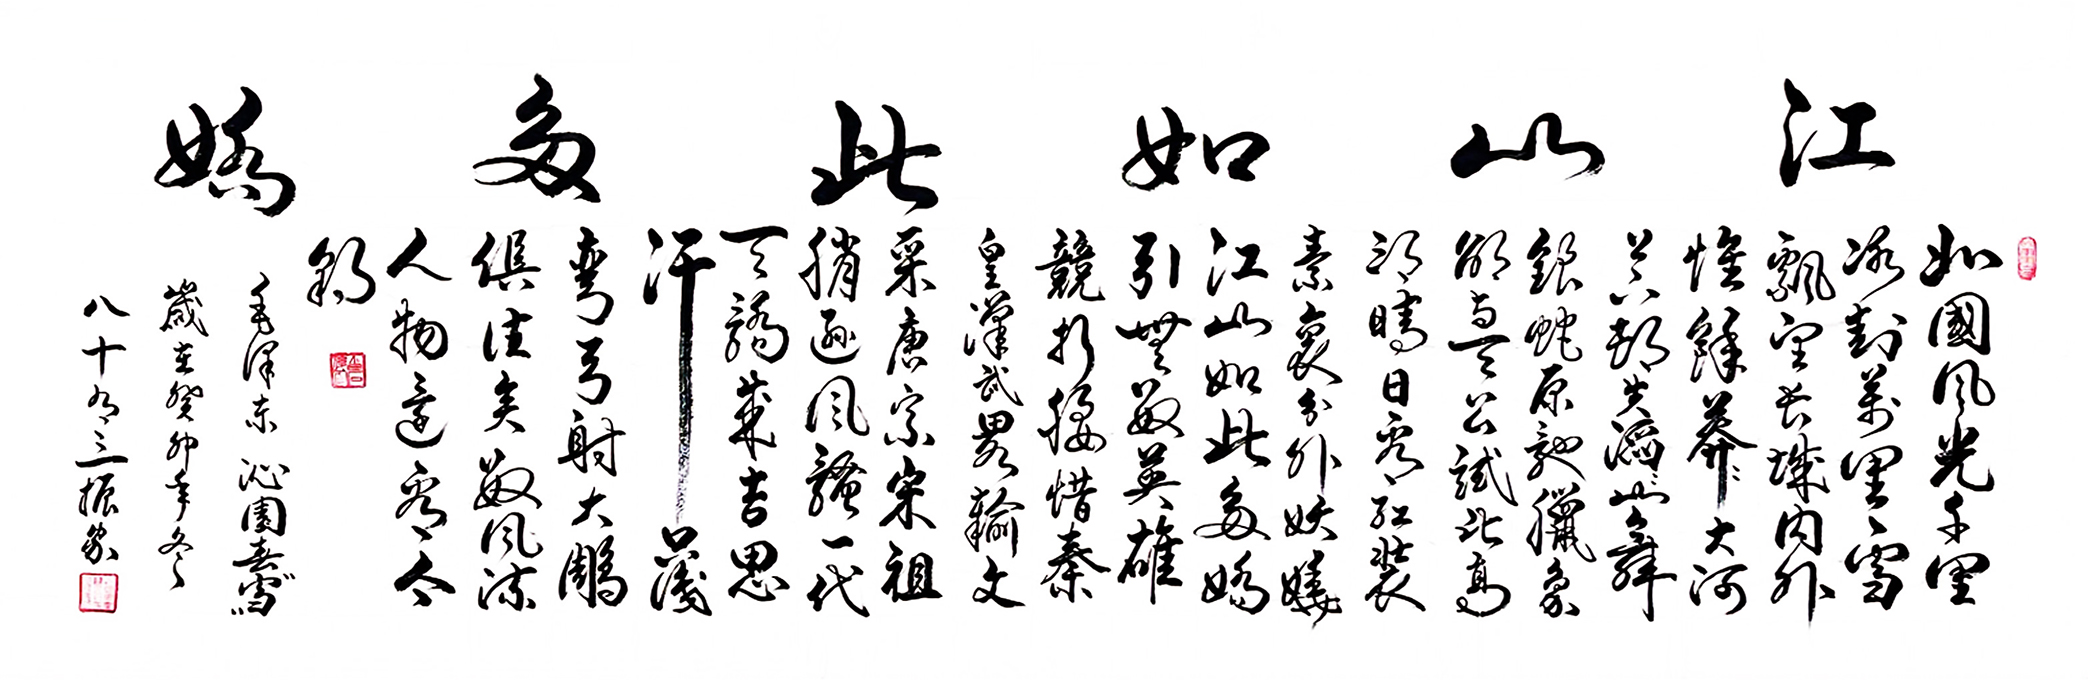 江山如此多嬌
北國風光千里
冰封萬里雪
飄望長城內外
惟餘莽々大河
上下頓失滔々山舞
銀蛇原馳臘象
欲與天公試比高
須晴日看紅裝
素裹分外妖嬈
江山如此多嬌
引無數英雄
競折腰惜秦
皇漢武畧輸文
采唐宗宋祖
稍遜風騷一代
天驕成吉思
汗只識
彎弓射大鵰
俱往矣數風流
人物還看今
朝
毛澤東沁園春雪
歲在癸卯年冬
八十有三振家